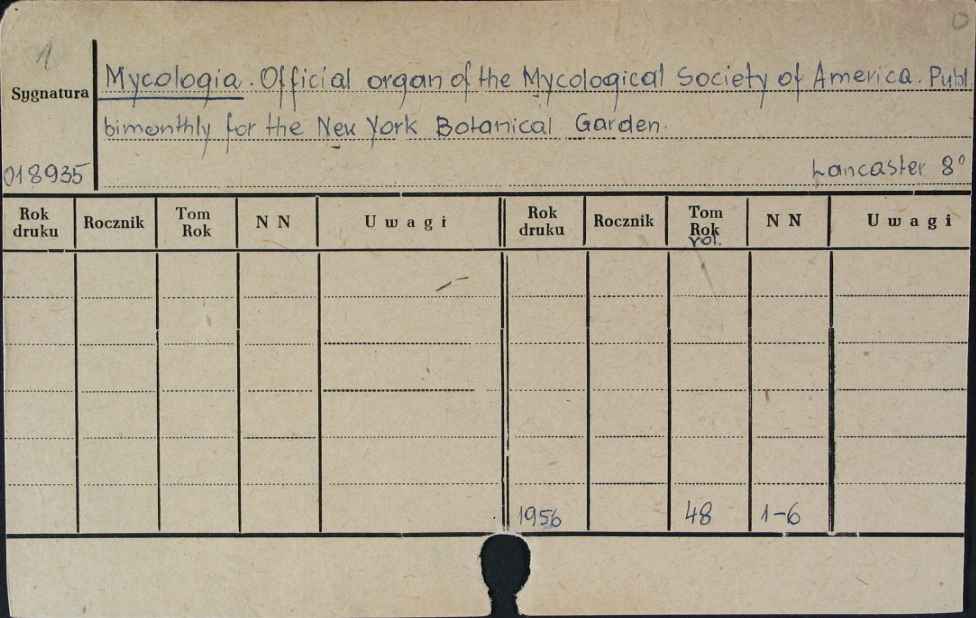 1
0
Mycologia. Official organ of the Mycological Society of America. Publ.
Sygnatura
bimonthly for the New York Botanical Garden.
018935
Lancaster 8°
Rok druku Rocznik Tom Rok N N Uwagi Rok druku Rocznik Tom Rok vol. N N Uwagi
1956 48 1-6